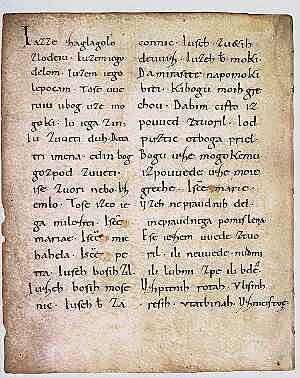 Iazze zaglagolo
Zlodeiu· Iuzem iego
delom· Iuzem iego
lepocam· Tose uue
ruiu ubog uze mo
goki· Iu iega zin·
Iu zuueti duh· Data
tri imena· edin bog
gozpod zuueti·
ise zuori nebo Izemlo·
Tose izco ie
ga milosti· Isce
mariae· Isce mic
hahela· Isce pe
tra· Iuseh bosih zil·
Iuzeh bosih mose
nic· Iuseh b· za
connic· Iuseh zuetih
deuuiz· Iuzeh b· moki·
Da mirasite napomoki
biti· Kibogu moih gre
chou· Dabim cisto iz
pouued ztuoril· Iod
puztic otboga priel·
Bogu uze mogokemu
izpouuede uze moie
greche· Isce marie·
uzeh nepraudnih del·
inepraudnega pomislena·
Ese iezem uuede ztuo
ril· ili neuuede· nudmi
ili lubmi zpe ili bde·
Uzpitnih rotah· Vlisnih
resih· Vtatbinah·